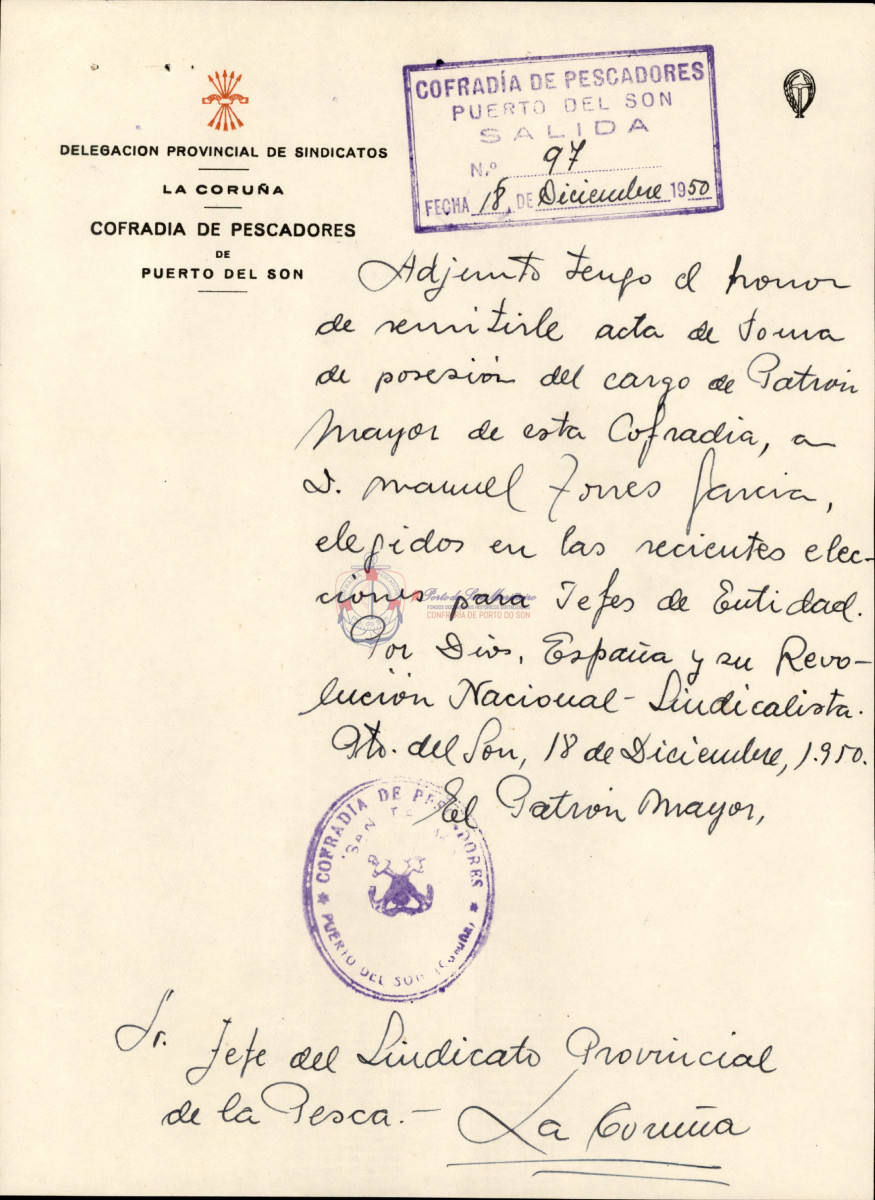 DELEGACION PROVINCIAL DE SINDICATOS
LA CORUÑA
COFRADIA DE PESCADORES
DE
PUERTO DEL SON
COFRADÍA DE PESCADORES
PUERTO DEL SON
SALIDA
N.º 97
FECHA 18 DE Diciembre 1950
Adjunto tengo el honor
de remitirle acta de toma
de posesión del cargo de Patrón
Mayor de esta Cofradia, a
D. Manuel Torres Garcia,
elegidos en las recientes elec-
ciones para Jefes de Entidad.
Por Dios, España y su Revo-
lución Nacional-Sindicalista.
Pto. del Son, 18 de Diciembre, 1.950.
El Patrón Mayor,
COFRADIA DE PESCADORES
SAN
PUERTO DEL SON (Coruña)
CONFRARÍA DE PORTO DO SON
Sr. Jefe del Sindicato Provincial
de la Pesca.-
La Coruña